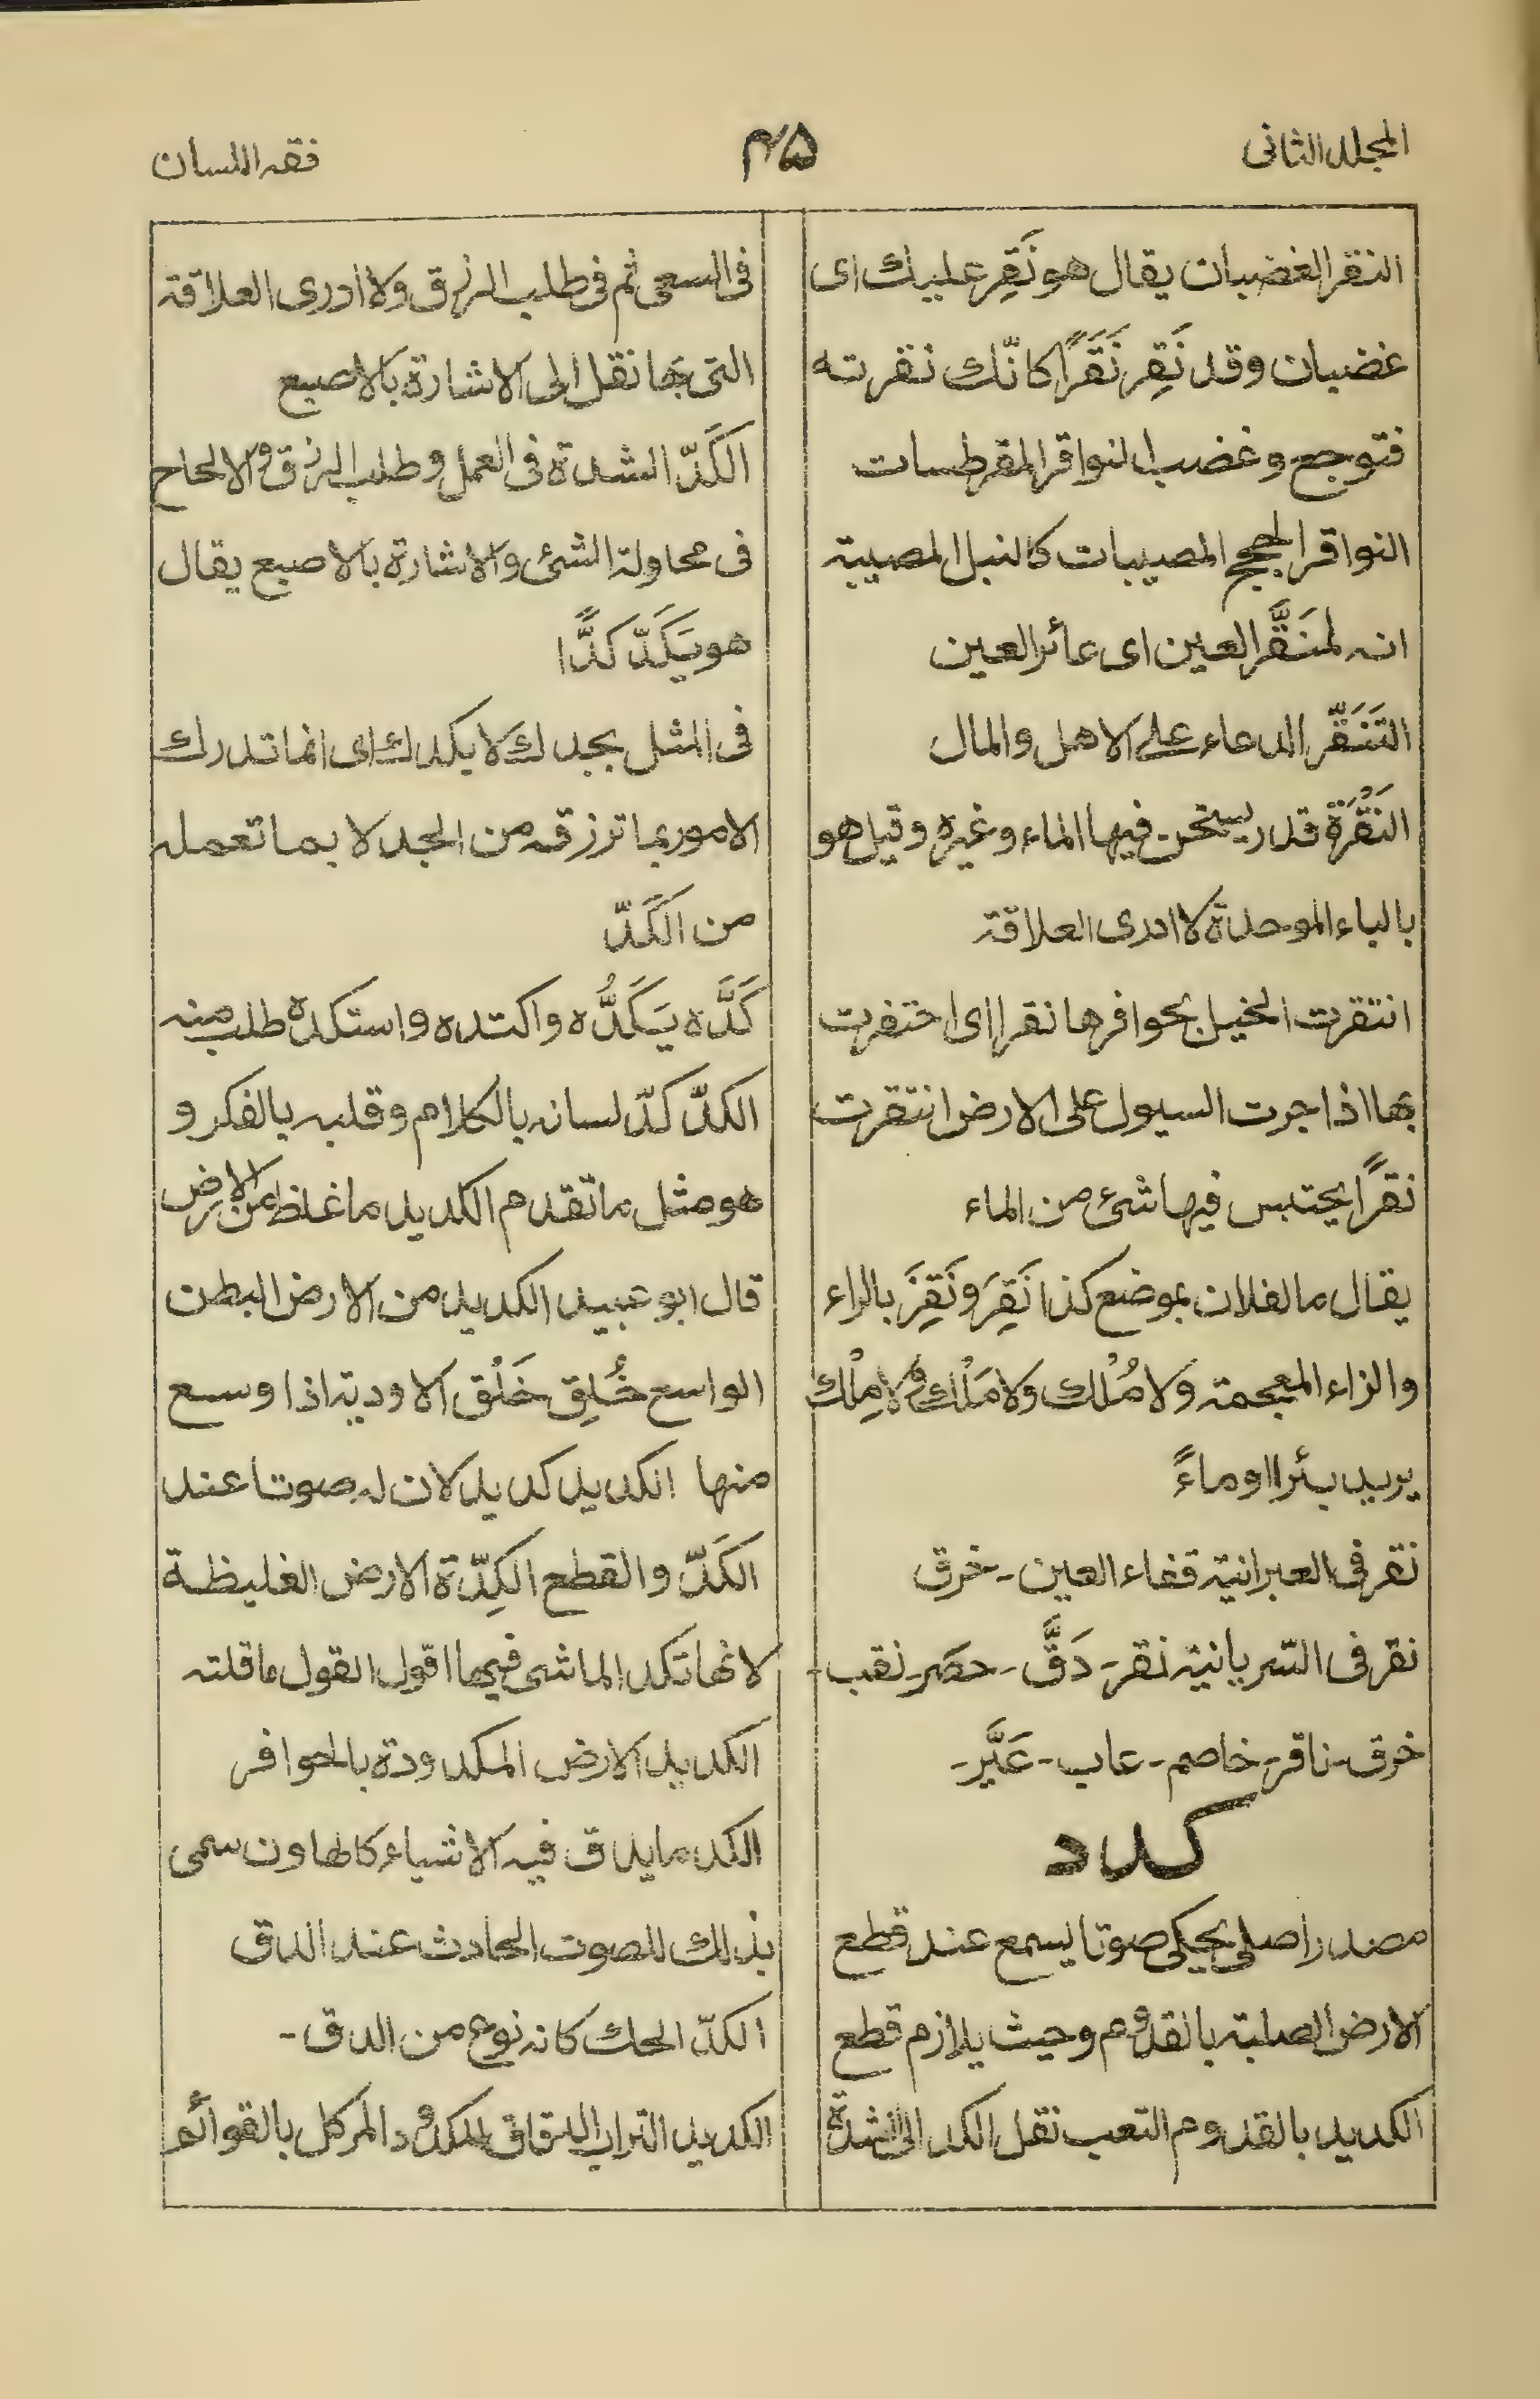 المجلد الثانى
۴۵
فقه اللسان
النقر الغضبان يقال هو نَقِر عليك اى
غضبان وقد نَقِر نَقَرًا كانّك نقرته
فتوجع وغضب النواقر المقرطسات
النواقر الحجج المصيبات كالنبل المصيبة
انه لمنَقَّر العين اى غائر العين
التَنَقّر الدعاء على الاهل والمال
النَقْرَة قدر يسخن فيها الماء وغيره وقيل هو
بالباء الموحدة لا ادرى العلاقة
انتقرت الخيل بحوافرها نقرا اى احتفرت
بها اذا جرت السيول على الارض انتقرت
نقرًا يحتبس فيها شئ من الماء
يقال ما لفلان بموضع كذا نَقِرَ ونَقِزَ بالراء
والزاء المعجمة ولا مُلْك ولا مَلْك ولا مِلْك
يريد بئرا او ماءً
نقر فى العبرانية فقاء العين - خرق
نقر فى السّريانية نقر - دَقَّ - حصر - نقب -
خرق - ناقر - خاصم - عاب - عَيَّر -
كدد
مصدر اصلى يحيكى صوتا يسمع عند قطع
الارض الصلبة بالقدوم وحيث يلازم قطع
الكديد بالقدوم التعب نقل الكد الى الشدة
فى السعى ثم فى طلب الرزق ولا ادرى العلاقة
التى بها نقل الى الاشارة بالاصبع
الكَدّ الشدة فى العمل وطلب الرزق والالحاح
فى محاولة الشئ والاشارة بالاصبع يقال
هو يَكَدّ كَدًّا
فى المثل بجدك لا يكدك اى انما تدرك
الامور بما ترزقه من الجد لا بما تعمله
من الكَدّ
كَدَّه يَكَدُّه واكتده واستكده طلب منه
الكدّ كدّ لسانه بالكلام وقلبه بالفكر و
هو مثل ما تقدم الكديد ما غلظ من الارض
قال ابو عبيد الكديد من الارض البطن
الواسع خُلِق خَلْق الاودية اذا وسع
منها الكديد كديد لان له صوتا عند
الكَدّ والقطع الكِدّة الارض الغليظة
لانها تكد الماشى فيها اقول القول ما قلته
الكديد الارض المكدودة بالحوافر
الكد ما يدق فيه الاشياء كالهاون سمى
بذلك للصوت الحادث عند الدق
الكدّ الحك كانه نوع من الدق -
الكديد التراب الدقاق المكدود المركل بالقوائم